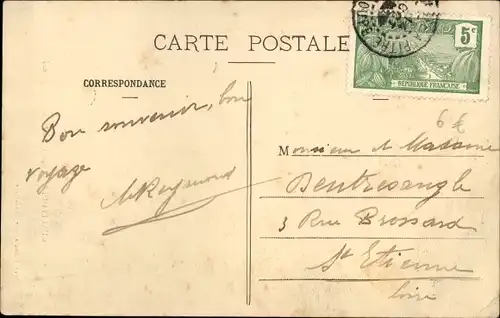 CARTE POSTALE
5c
RÉPUBLIQUE FRANÇAISE
CORRESPONDANCE
Bon souvenir, bon
voyage
6 €
Monsieur
Dentresangle
3 Rue Brossard
St Etienne
Loire